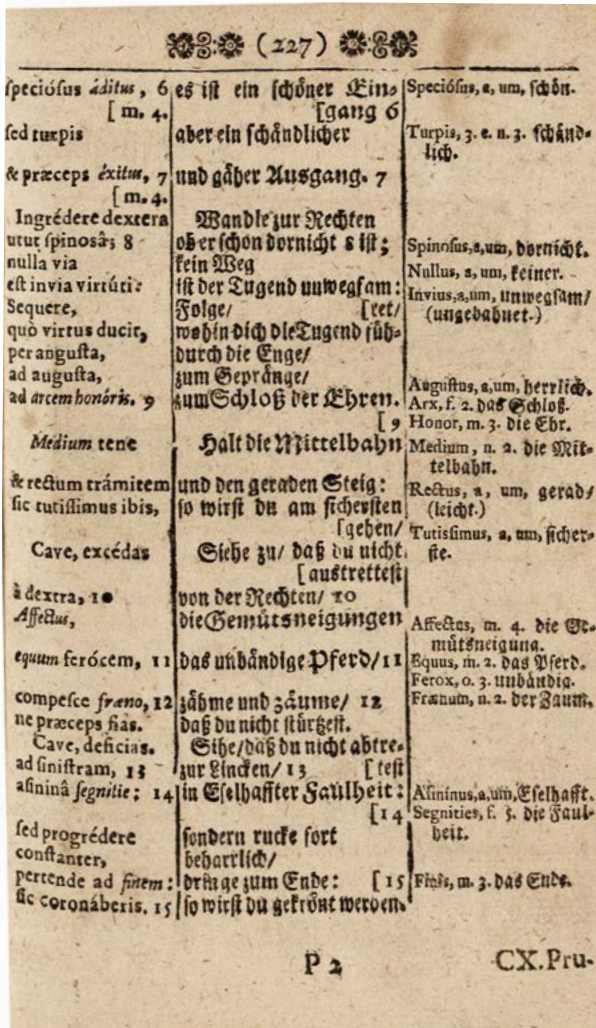 (227)
speciósus áditus, 6
[m. 4.
sed turpis
& præceps éxitus, 7
[m. 4.
Ingrédere dextera
utut spinosâ; 8
nulla via
est invia virtúti:
Sequere,
quò virtus ducit,
per angusta,
ad augusta,
ad arcem honóris. 9
Medium tene
& rectum trámitem
sic tutissimus ibis,
Cave, excédas
à dextra, 10
Affectus,
equum ferócem, 11
compesce fræno, 12
ne præceps fias.
Cave, deficias.
ad sinistram, 13
asininâ segnitie; 14
sed progrédere
constanter,
pertende ad finem:
sic coronáberis. 15
es ist ein schöner Ein-
[gang 6
aber ein schändlicher
und gäher Ausgang. 7
Wandle zur Rechten
ob er schon dornicht 8 ist;
kein Weg
ist der Tugend unwegsam:
Folge/ [ret/
wohin dich die Tugend füh-
durch die Enge/
zum Gepränge/
zum Schloß der Ehren.
[9
Halt die Mittelbahn
und den geraden Steig:
so wirst du am sichersten
[gehen/
Siehe zu/ daß du nicht
[austrettest
von der Rechten/ 10
die Gemütsneigungen
das unbändige Pferd/ 11
zähme und zäume/ 12
daß du nicht stürtzest.
Sihe/ daß du nicht abtre-
zur Lincken/ 13 [test
in Eselhaffter Faulheit:
[14
sondern rucke fort
beharrlich/
dringe zum Ende: [15
so wirst du gekrönt werden.
Speciósus, a, um, schön.
Turpis, 3. e. n. 3. schänd-
lich.
Spinosus, a, um, dornicht.
Nullus, a, um, keiner.
Invius, a, um, unwegsam/
(ungebahnet.)
Augustus, a, um, herrlich.
Arx, f. 2. das Schloß.
Honor, m. 3. die Ehr.
Medium, n. 2. die Mit-
telbahn.
Rectus, a, um, gerad/
(leicht.)
Tutissimus, a, um, sicher-
ste.
Affectus, m. 4. die Ge-
mütsneigung.
Equus, m. 2. das Pferd.
Ferox, o. 3. unbändig.
Frænum, n. 2. der Zaum.
Asininus, a, um, Eselhafft.
Segnities, f. 5. die Faul-
heit.
Finis, m. 3. das Ende.
P 2
CX. Pru-